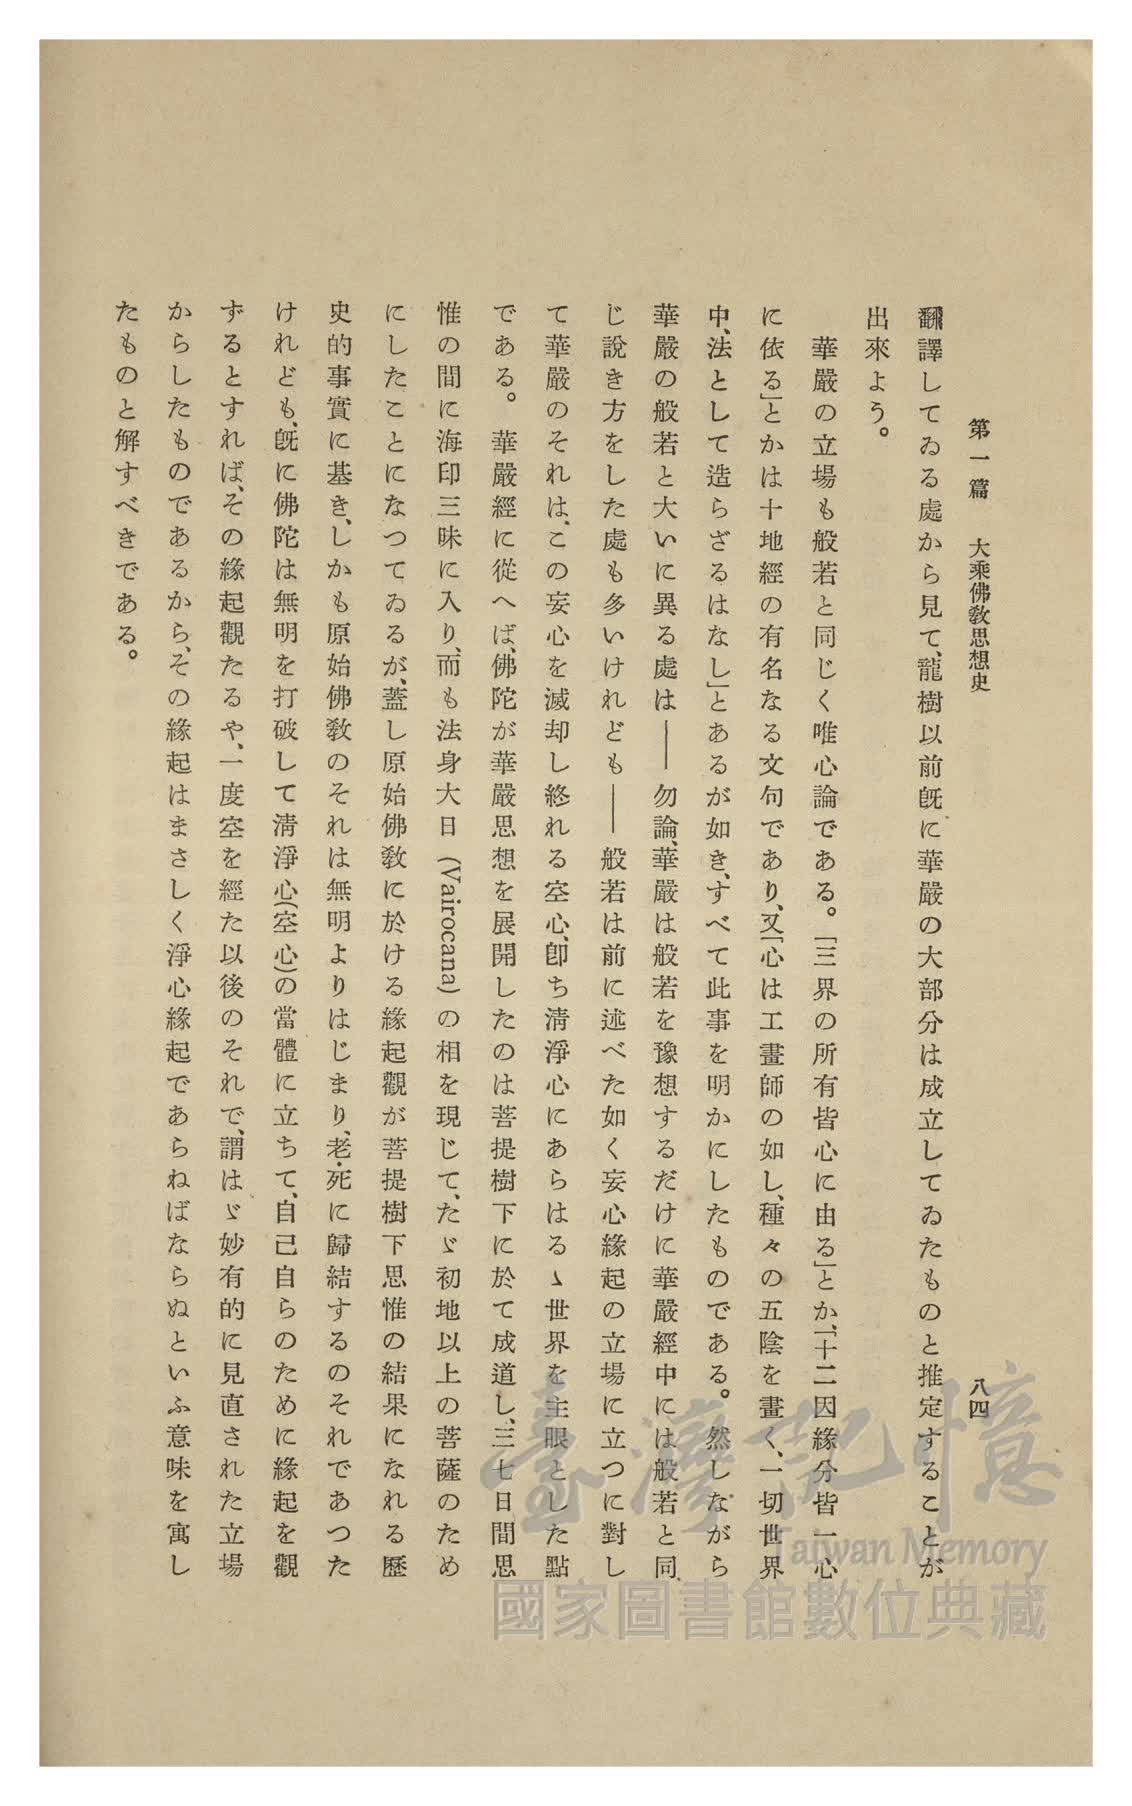 第一篇　大乘佛教思想史　八四
翻譯してゐる處から見て、龍樹以前旣に華嚴の大部分は成立してゐたものと推定することが
出來よう。
華嚴の立場も般若と同じく唯心論である。「三界の所有皆心に由る」とか、「十二因緣分皆一心
に依る」とかは十地經の有名なる文句であり、又「心は工畫師の如し、種々の五陰を畫く、一切世界
中、法として造らざるはなし」とあるが如き、すべて此事を明かにしたものである。然しながら
華嚴の般若と大いに異る處は――勿論、華嚴は般若を豫想するだけに華嚴經中には般若と同
じ說き方をした處も多いけれども――般若は前に述べた如く妄心緣起の立場に立つに對し
て華嚴のそれは、この妄心を滅却し終れる空心、卽ち淸淨心にあらはるゝ世界を主眼とした點
である。華嚴經に從へば、佛陀が華嚴思想を展開したのは菩提樹下に於て成道し、三七日間思
惟の間に海印三昧に入り、而も法身大日(Vairocana)の相を現じて、たゞ初地以上の菩薩のため
にしたことになつてゐるが、蓋し原始佛敎に於ける緣起觀が菩提樹下思惟の結果になれる歷
史的事實に基き、しかも原始佛敎のそれは無明よりはじまり、老・死に歸結するのそれであつた
けれども、旣に佛陀は無明を打破して淸淨心(空心)の當體に立ちて、自己自らのために緣起を觀
ずるとすれば、その緣起觀たるや、一度空を經た以後のそれで、謂はゞ妙有的に見直された立場
からしたものであるから、その緣起はまさしく淨心緣起であらねばならぬといふ意味を寓し
たものと解すべきである。
臺灣記憶
Taiwan Memory
國家圖書館數位典藏